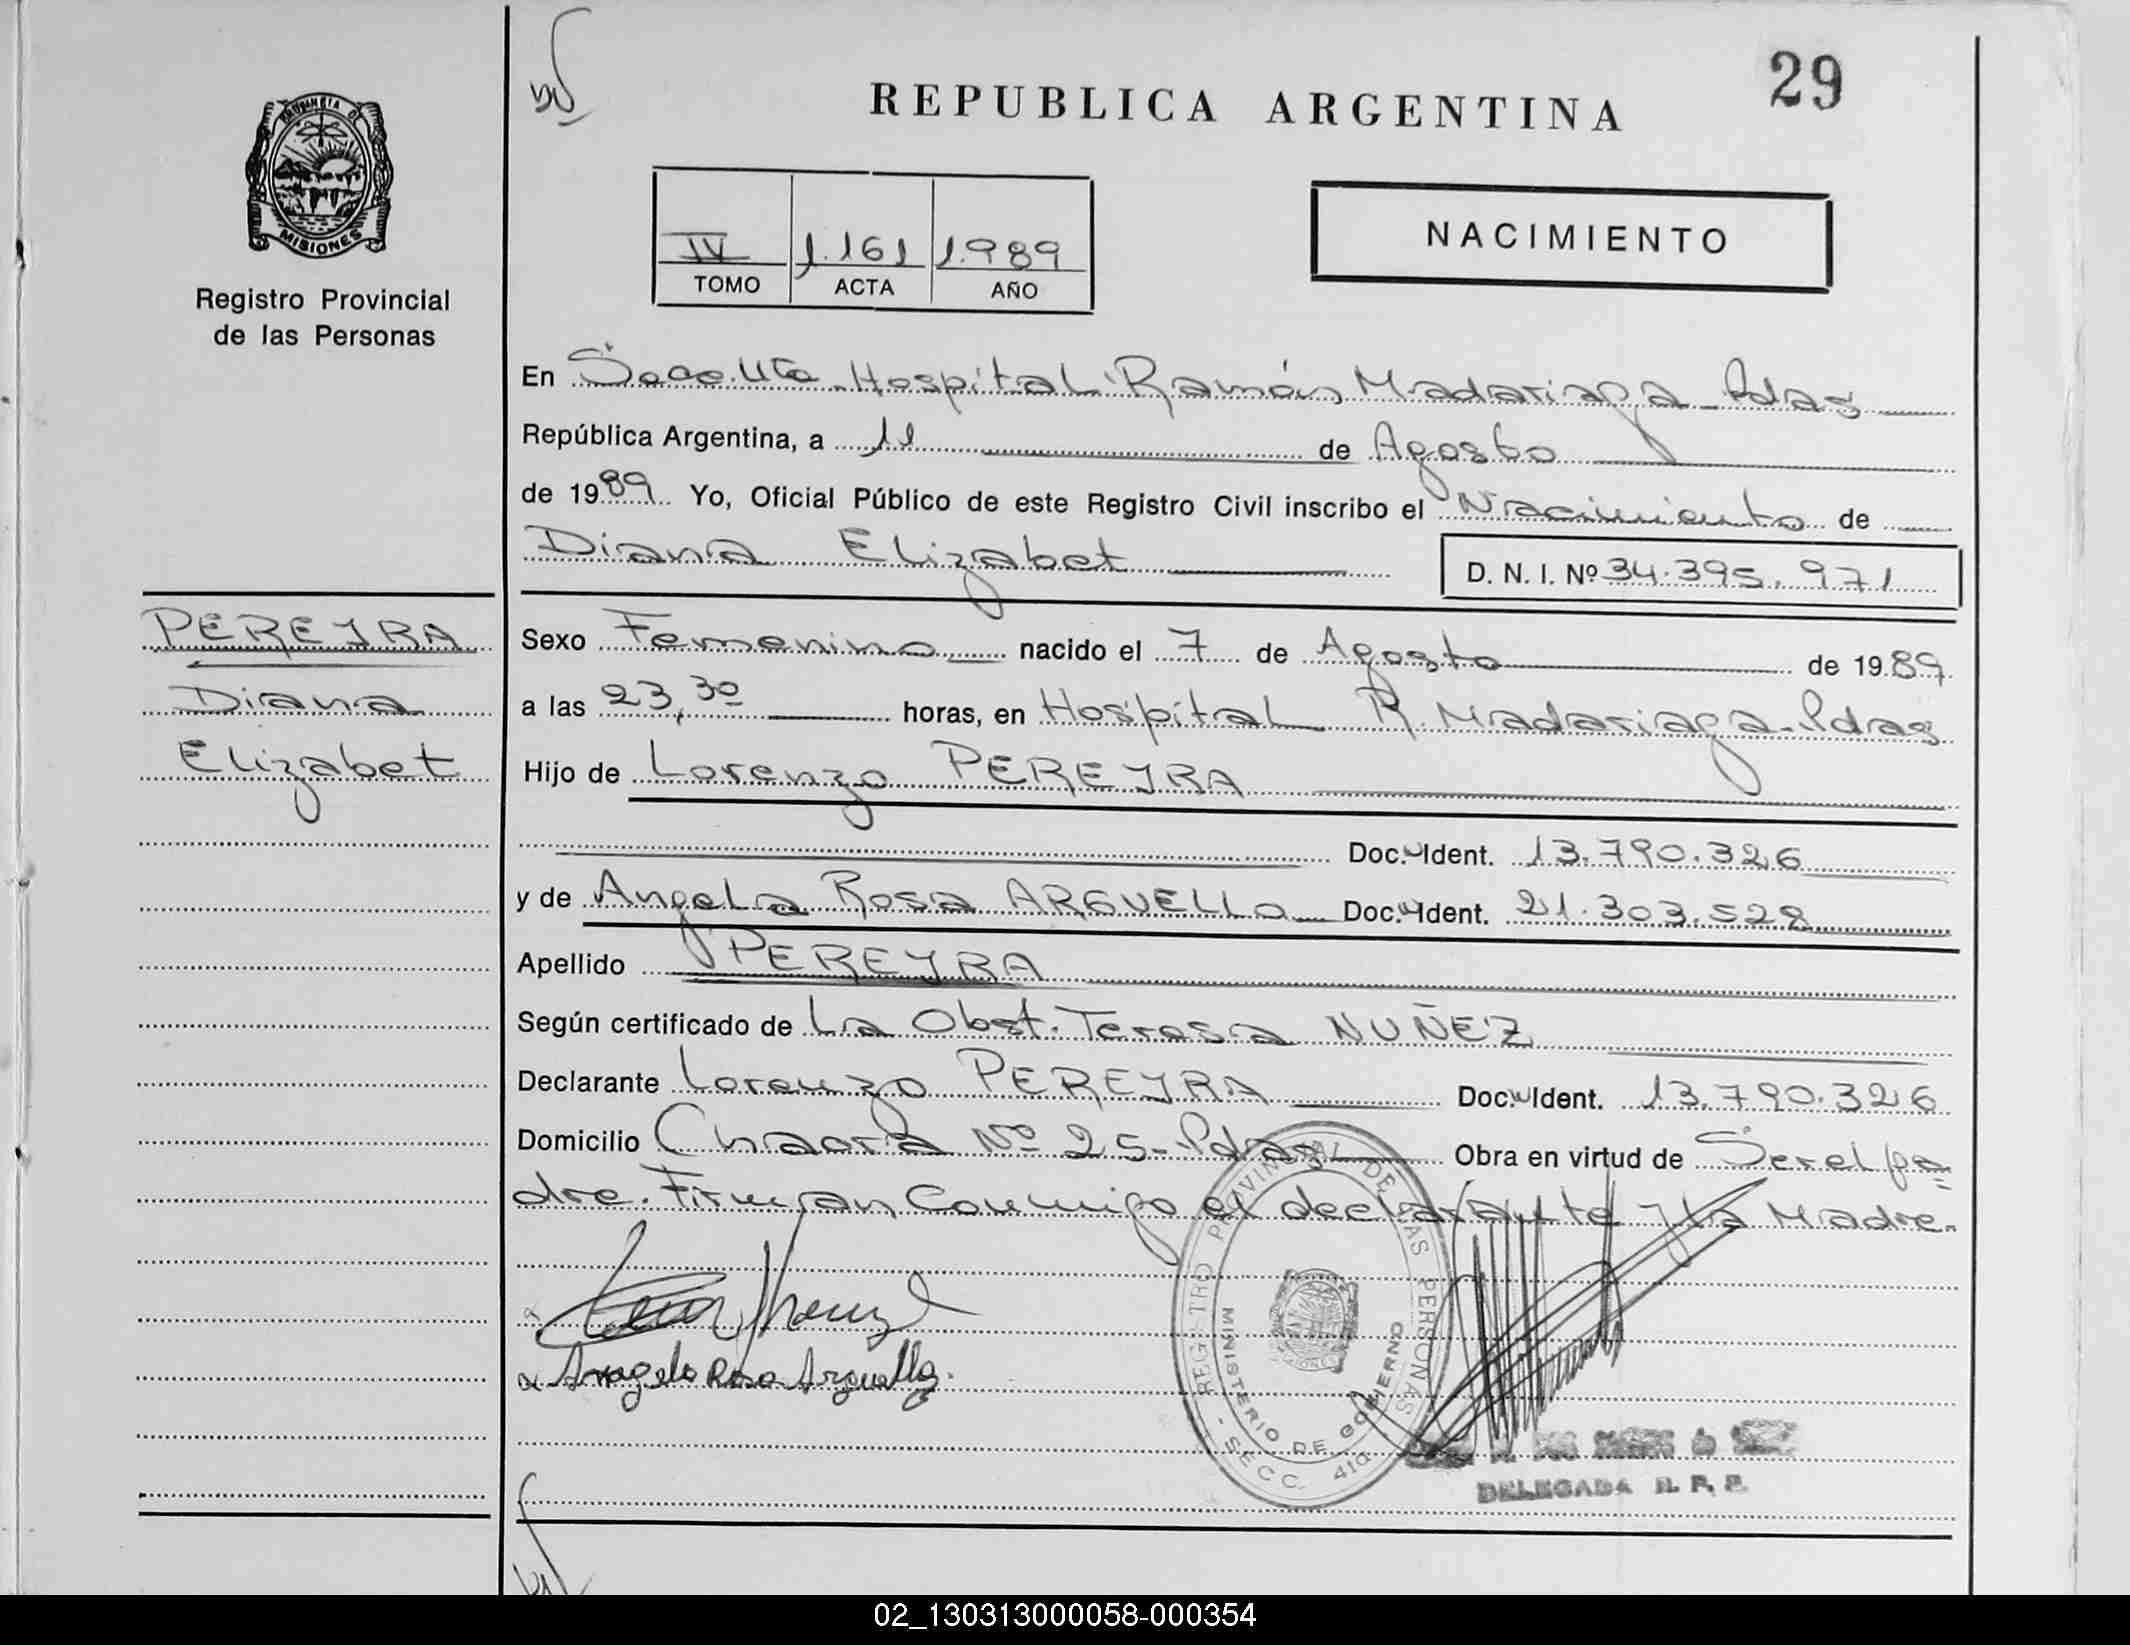 29
REPUBLICA ARGENTINA
PROVINCIA DE
MISIONES
Registro Provincial
de las Personas
IV 1.161 1.989
TOMO ACTA AÑO
NACIMIENTO
En Hospital Ramón Madariaga - Pdas
República Argentina, a 11 de Agosto
de 1989 Yo, Oficial Público de este Registro Civil inscribo el Nacimiento de
Diana Elizabet
D. N. I. Nº 34.395.971
PEREYRA
Diana
Elizabet
Sexo Femenino nacido el 7 de Agosto de 1989
a las 23,30 horas, en Hospital R. Madariaga - Pdas
Hijo de Lorenzo PEREYRA
Doc. Ident. 13.790.326
y de Angela Rosa ARGUELLO Doc. Ident. 21.303.528
Apellido PEREYRA
Según certificado de La Obst. Teresa NUÑEZ
Declarante Lorenzo PEREYRA Doc. Ident. 13.790.326
Domicilio Chacra Nº 25 - Pdas Obra en virtud de Ser el pa
dre. Firman Conmigo el declarante y la Madre.
Angela Rosa Arguello
REGISTRO PROVINCIAL DE LAS PERSONAS
MINISTERIO DE GOBIERNO
SECC. 41a
DELEGADA R. P. P.
02_130313000058-000354